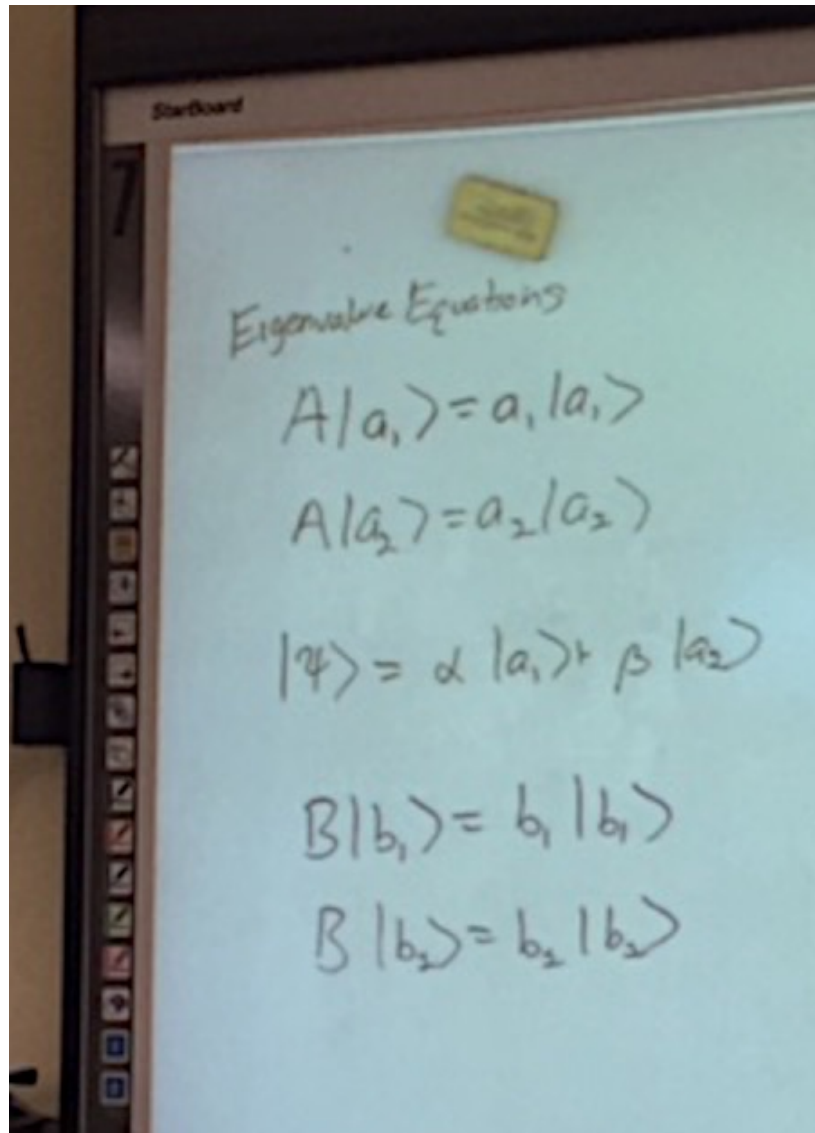 StarBoard
7
Eigenvalue Equations
A|a₁⟩ = a₁|a₁⟩
A|a₂⟩ = a₂|a₂⟩
|ψ⟩ = α |a₁⟩ + β |a₂⟩
B|b₁⟩ = b₁ |b₁⟩
B|b₂⟩ = b₂ |b₂⟩